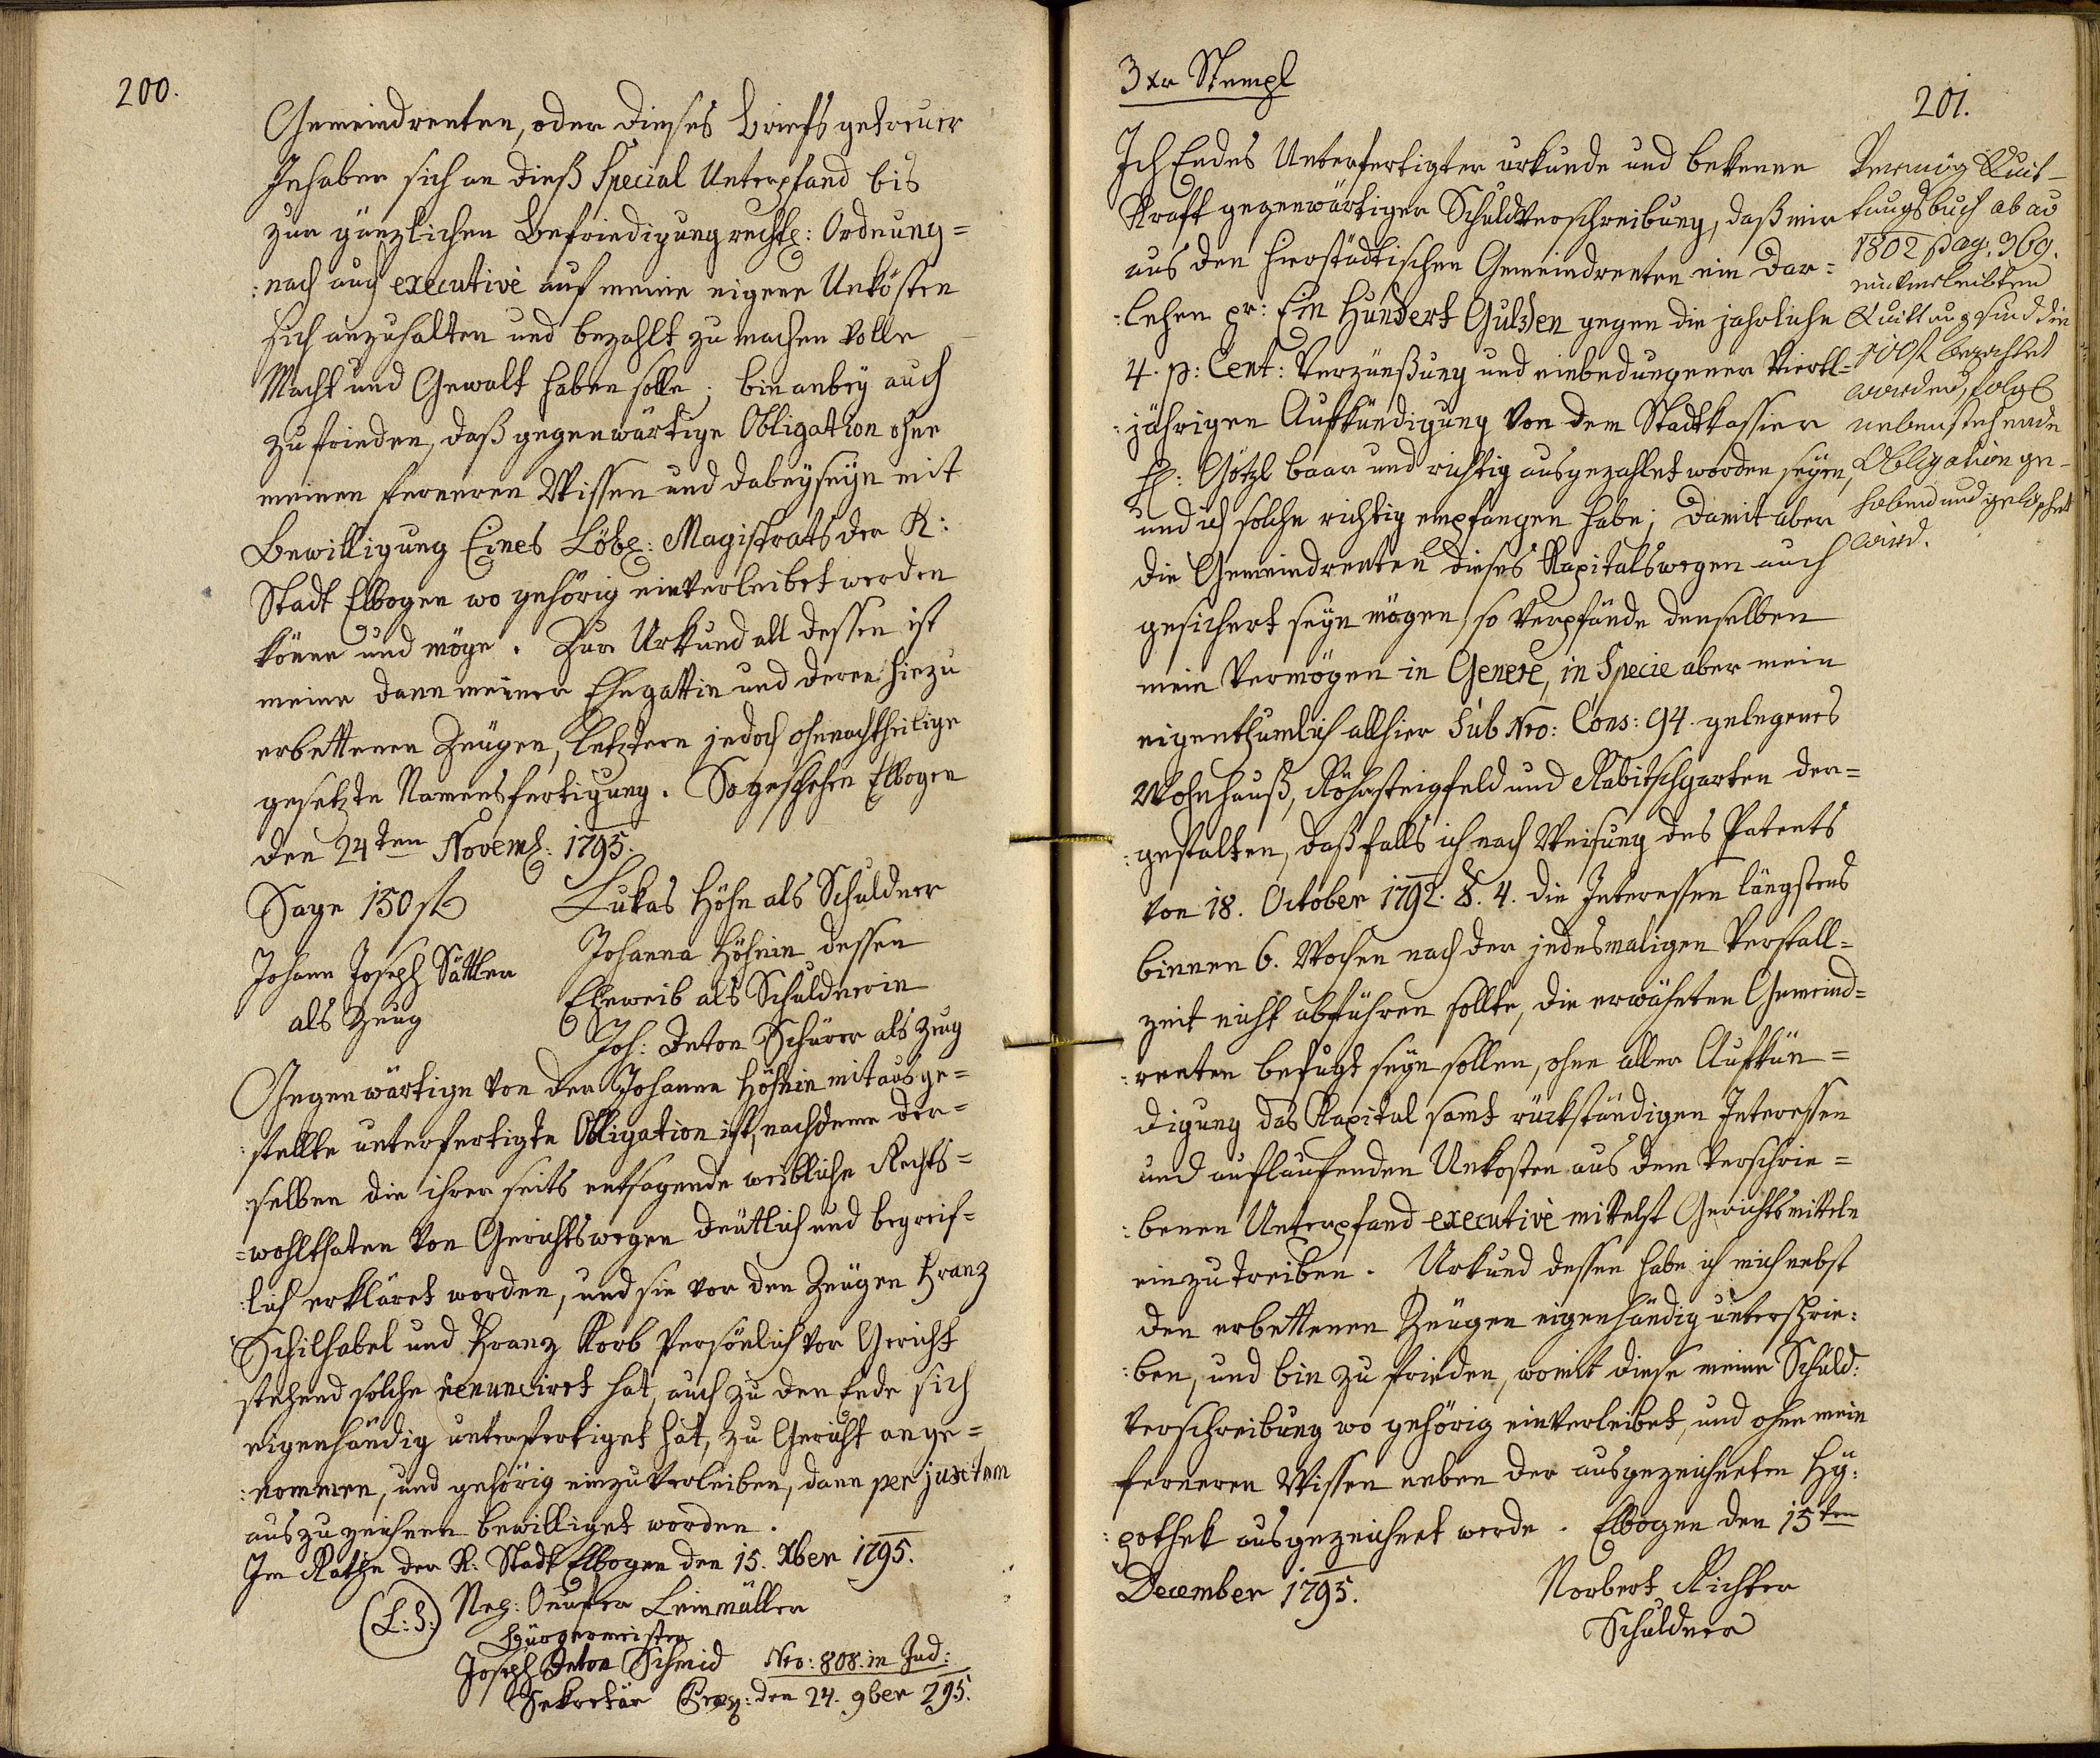 200.
Gemeindrenten, oder dieses briefs getreuer
Inhaber sich an dieß Special Unterpfand bis
zur gänzlichen Befriedigung rechtl: Ordnung=
:nach auch executivè auf meine eigene Unkösten
sich anzuhalten und bezahlt zu machen volle
Macht und Gewalt haben solle; bin anbey auch
zufrieden, daß gegenwärtige Obligation ohne
meinen ferneren Wissen und dabeyseyn mit
Bewilligung Eines Löbl: Magistrats der K:
Stadt Elbogen wo gehörig einverleibet werden
könne und möge. Zur Urkund all dessen ist
meine dann meiner Ehegattin und deren hiezu
erbettenen Zeugen, letztern jedoch ohnnachtheilige
gesetzte Namensfertigung. So geschehen Elbogen
den 24ten Novemb: 1795.
Sage 150 fl
Lukas Höhn als Schuldner
Johann Joseph Sattler
als Zeug
Johanna Höhnin dessen
Eheweib als Schuldnerin
Joh: Anton Schürer als Zeug
Gegenwärtige von der Johanna Höhnin mitausge=
:stellte unterfertigte Obligation ist, nachdeme der=
:selben die ihrer seits entsagende weibliche Rechts=
=wohlthaten von Gerichtswegen deutlich und begreif=
:lich erkläret worden, und sie vor den Zeugen Franz
Schilhabel und Franz Korb persönlich vor Gericht
stehend solche renunciret hat, auch zu den Ende sich
eigenhändig unterfertiget hat, zu Gericht ange=
:nommen, und gehörig einzuverleiben, dann per juxtam
auszuzeichnen bewilliget worden.
Im Rathe der K: Stadt Elbogen den 15. Xber 1795.
(L:S:)
Leinmüller
Bürgermeister
Joseph Anton Schmid
Sekretär
Nro: 808. in Jud:
den 24. 9ber 795.
3 xr Stempl
201.
Ich Endes Unterfertigter urkunde und bekenne
Kraft gegenwärtiger Schuldverschreibung, daß mir
aus den hierstädtischen Gemeindrenten ein Dar=
:lehen pr: Ein Hundert Gulden gegen die jahrliche
4. p: Cent: Verzünßung und einbedungener Viertl=
:jährigen Aufkündigung von dem Stadtkassier
H: Götzl baar und richtig ausgezahlet worden seyen,
und ich solche richtig empfangen habe; Damit aber
die Gemeindrenten dieses Kapitalswegen auch
gesichert seyn mögen, so verpfände denselben
mein Vermögen in Generè, in Specie aber mein
eigenthumlich allhier Sub Nro: Cons: 94. gelegenes
Wohnhauß, Röhrsteigfeld und Rabitschgarten der=
:gestalten, daß falls ich nach Weisung des Patents
von 18. October 1792. §. 4. die Interessen längstens
binnen 6. Wochen nach der jedesmaligen Verfall=
zeit nicht abführen sollte, die erwähnten Gemeind=
:renten befugt seyn sollen, ohne aller Aufkün=
digung das Kapital samt rückständigen Interessen
und auflaufenden Unkosten aus dem verschrie=
:benen Unterpfand executivè mittelst Gerichtsmitteln
einzutreiben. Urkund dessen habe ich mich nebst
den erbettenen Zeugen eigenhändig unterschrie:
:ben, und bin zu frieden, womit diese meine Schuld:
verschreibung wo gehörig einverleibet, und ohne mein
ferneren Wissen neben der ausgezeichneten Hy:
:pothek ausgezeichnet werde. Elbogen den 15ten
December 1795.
Norbert Richter
Schuldner
Vermög Quit=
tungsbuch ab ao
1802 pag. 369.
einverleibten
Quittung sind die
100 fl bezahlet
worden, folgl
nebenstehende
Obligation ge=
hoben und gelöschet
wird.